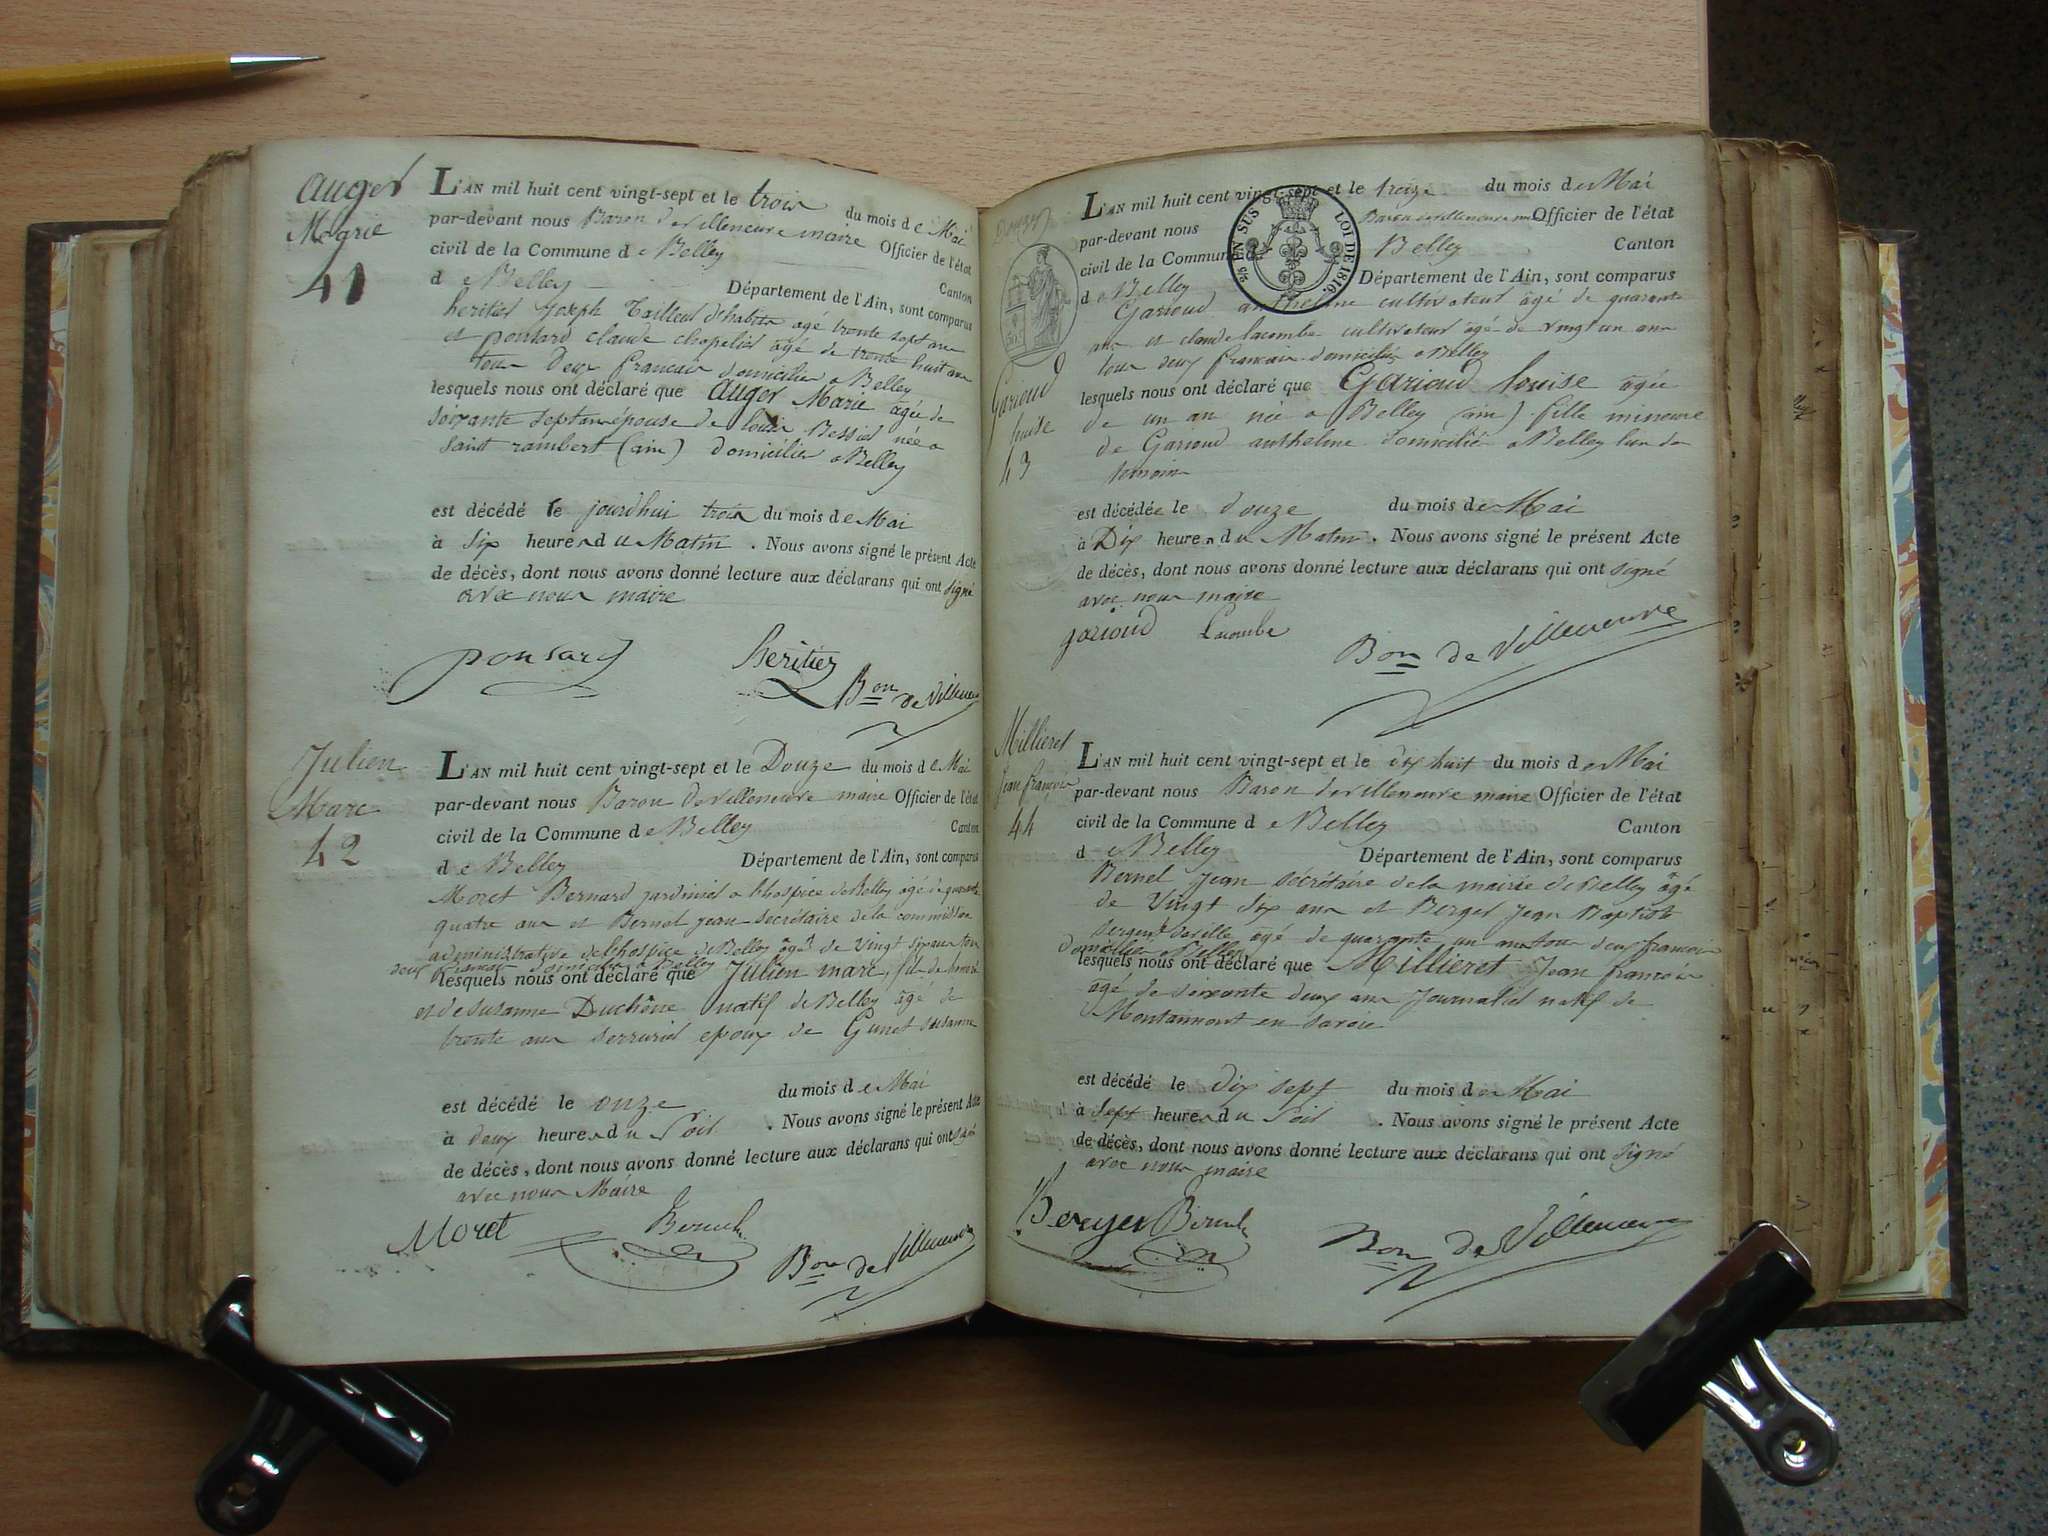 Auger
Marie
41
L'AN mil huit cent vingt-sept et le trois du mois de Mai
par-devant nous Baron de villeneuve maire Officier de l'état
civil de la Commune de Belley Canton
de Belley Département de l'Ain, sont comparus
heritier Joseph tailleur d'habits agé trente sept ans
et ponsard claude chapelier âgé de trente huit ans
tous deux francais domiciliés a Belley
lesquels nous ont déclaré que Auger Marie âgée de
soixante sept ans épouse de louis Bessiel née a
saint rambert (ain) domiciliée a Belley
est décédé le jourdhui trois du mois de Mai
à six heures du Matin. Nous avons signé le présent Acte
de décès, dont nous avons donné lecture aux déclarans qui ont signé
avec nous maire
ponsard heritier
Bon de Villeneuve
Julien
Marc
42
L'AN mil huit cent vingt-sept et le Douze du mois de Mai
par-devant nous Baron de villeneuve maire Officier de l'état
civil de la Commune de Belley Canton
de Belley Département de l'Ain, sont comparus
Moret Bernard jardinier a l'hospice de Belley âgé de quarante
quatre ans et Bernel jean secrétaire de la commission
administrative de l'hospice de Belley âgé de vingt six ans tous
deux francais domiciliés a Belley
lesquels nous ont déclaré que Julien marc, fils de
et de susanne Duchêne natif de Belley âgé de
trente ans serrurier epoux de Gunet susanne
est décédé le onze du mois de Mai
à deux heures du soir. Nous avons signé le présent Acte
de décès, dont nous avons donné lecture aux déclarans qui ont signé
avec nous Maire
Moret Bernel
Bon de Villeneuve
25 EN SUS LOI DE 1816.
Garioud
louise
43
L'AN mil huit cent vingt-sept et le treize du mois de Mai
par-devant nous Baron de villeneuve Officier de l'état
civil de la Commune Belley Canton
de Belley Département de l'Ain, sont comparus
Garioud anthelme cultivateur âgé de quarante
ans et claude lacombe cultivateur agé de vingt un ans
tous deux francais domiciliés a Belley
lesquels nous ont déclaré que Garioud louise âgée
de un an née a Belley (ain) fille mineure
de Garioud anthelme domicilié a Belley l'un des
temoins
est décédée le douze du mois de Mai
à Dix heures du Matin. Nous avons signé le présent Acte
de décès, dont nous avons donné lecture aux déclarans qui ont signé
avec nous maire
garioud Lacombe
Bon de Villeneuve
Millieret
Jean françois
44
L'AN mil huit cent vingt-sept et le dix huit du mois de Mai
par-devant nous Baron de villeneuve maire Officier de l'état
civil de la Commune de Belley Canton
de Belley Département de l'Ain, sont comparus
Bernel Jean secrétaire de la mairie de Belley âgé
de vingt six ans et Berger Jean Baptiste
sergent de ville âgé de quarante un ans tous deux francais
domiciliés a Belley
lesquels nous ont déclaré que Millieret Jean francois
âgé de soixante deux ans Journalier natif de
en savoie
est décédé le dix sept du mois de Mai
à sept heures du soir. Nous avons signé le présent Acte
de décès, dont nous avons donné lecture aux déclarans qui ont signé
avec nous maire
Berger Bernel
Bon de Villeneuve